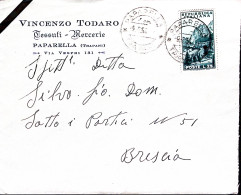 VINCENZO TODARO
Tessuti - Mercerie
PAPARELLA (TRAPANI)
VIA VENERI 181
REPUBBLICA
ITALIANA
PAPARELLA
Spett. Ditta
Silvo fù Dom.
Sotto i Portici N 51
Brescia